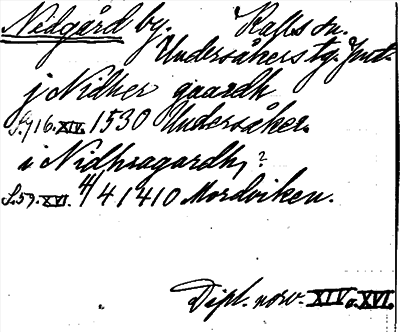 Nedgård by. Halls sn.
Undersåkers tg. Jmtl.
j Nidher gaardh
S. 716. XIV. 1530 Undersåker.
i Nidhragardh, ?
S. 59. XVI. 4/4 1410 Mordviken.
Dipl. norv. XIV o. XVI.